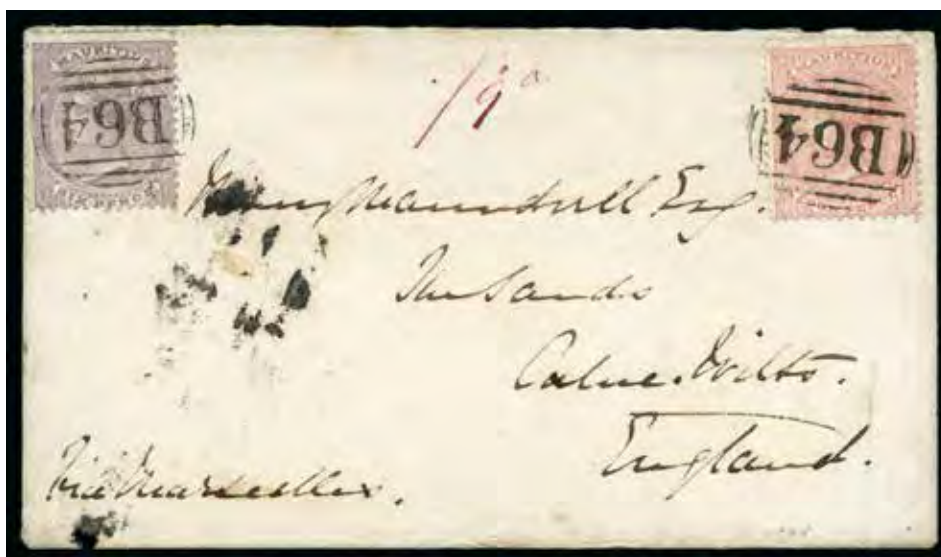 MAURITIUS
B64
MAURITIUS
B64
Esq.
The Sands
Calne. Wilts.
England.
Via Marseilles.